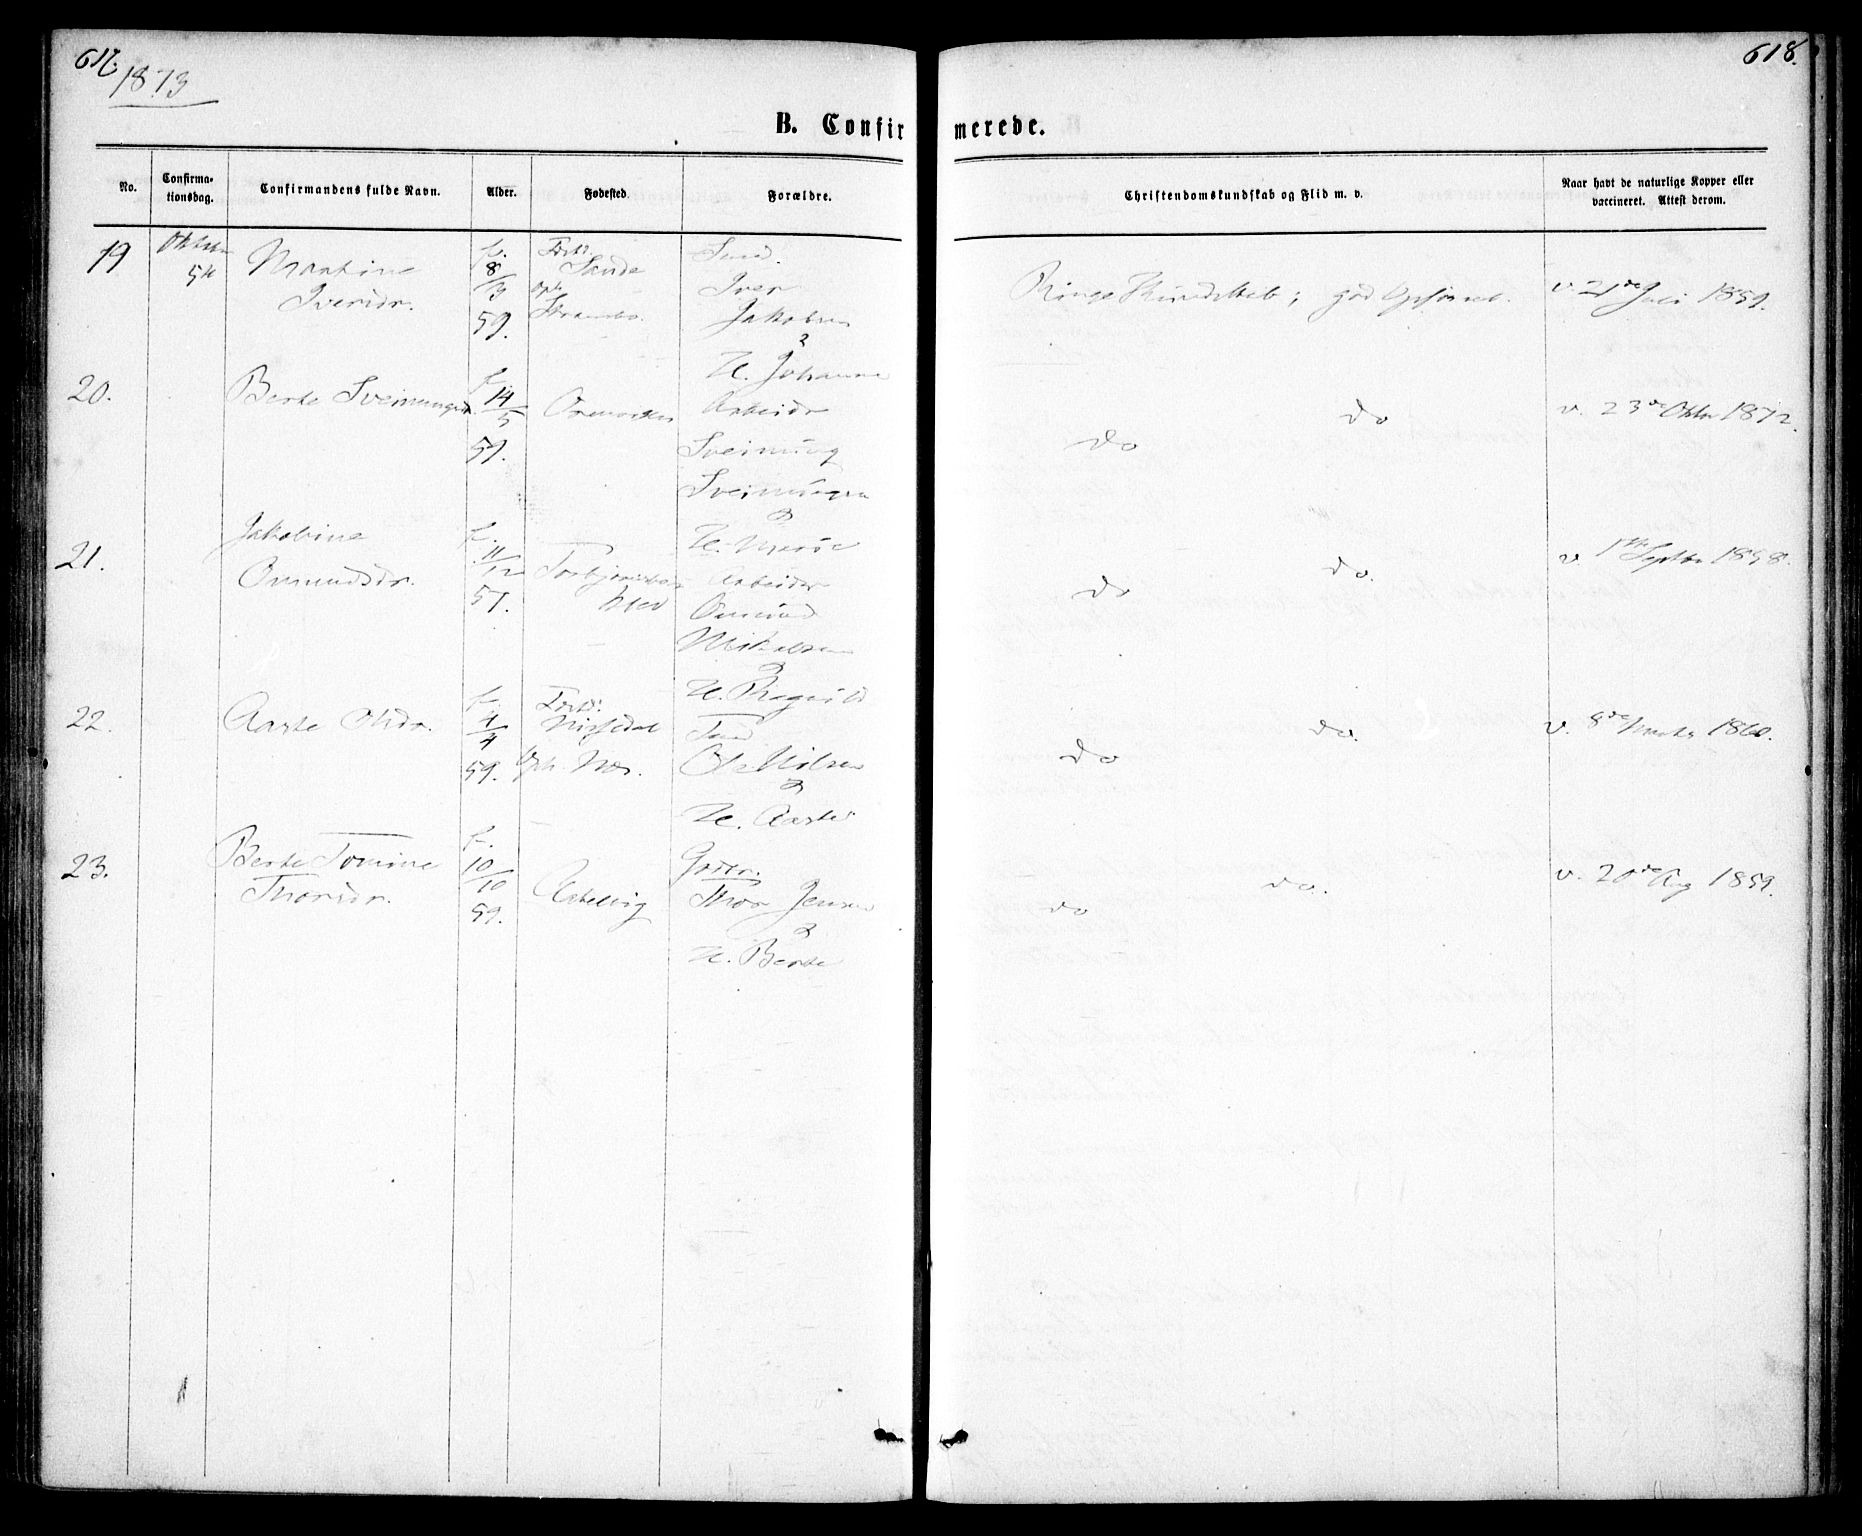 617.
1873
618.
B. Confirmerede.
No.
Confirma-
tionsdag.
Confirmandens fulde Navn.
Alder.
Fødested.
Forældre.
Christendomskundskab og Flid m. v.
Naar havt de naturlige Kopper eller
vaccineret. Attest derom.
19
5te
Martine
Iversdr.
f.
8/3
59.
Sande
Iver
Jakobsen
&
H. Johanne
Ringe Kundskab; god Opførsel.
v. 21de Juli 1859.
20.
Berte Sveinungsdr.
f.
14/5
59.
Arbeider
Sveinung
Sveinungsen
&
do
do
v. 23de Oktbr 1872.
21.
Jakobine
Omundsdr.
f.
11/12
57.
Arbeider
Omund
&
H. Ragnild
do
do
v. 1ste Septbr 1858.
22.
Aaste Olsdr.
f.
59.
Nissedal
Oph. Næs.
Ole Nilsen
&
H. Aaste
do
do.
v. 8de Marts 1860.
23.
Berte Tomine
Thorsdr.
f.
10/10
59.
Thor Jensen
&
H. Berte
do
do.
v. 20de Aug 1859.